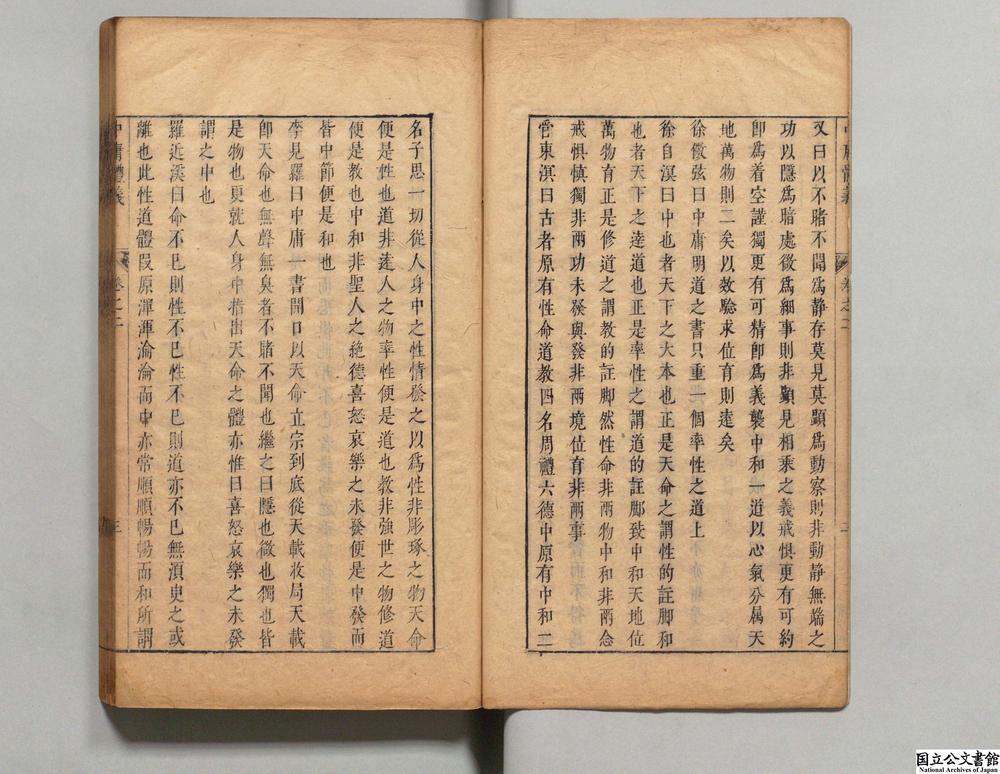 中庸體義
卷之二
二
又曰以不睹不聞爲静存莫見莫顯爲動察則非動静無端之
功以隱爲暗處微爲細事則非顯見相乘之義戒惧更有可約
卽爲着空謹獨更有可精卽爲義襲中和一道以心氣分属天
地萬物則二矣以效驗求位育則逺矣
徐儆弦曰中庸明道之書只重一個率性之道上
徐自溟曰中也者天下之大本也正是天命之謂性的註脚和
也者天下之逹道也正是率性之謂道的註脚致中和天地位
萬物育正是修道之謂教的註脚然性命非兩物中和非兩念
戒惧慎獨非兩功未發與發非兩境位育非兩事
管東溟曰古者原有性命道教四名周禮六德中原有中和二
名子思一切從人身中之性情發之以爲性非彫琢之物天命
便是性也道非逺人之物率性便是道也教非強世之物修道
便是教也中和非聖人之絶德喜怒哀樂之未發便是中發而
皆中節便是和也
李見羅曰中庸一書開口以天命立宗到底從天載收局天載
卽天命也無聲無臭者不睹不聞也繼之曰隱也微也獨也皆
是物也更就人身中指出天命之體亦惟曰喜怒哀樂之未發
謂之中也
羅近溪曰命不已則性不已性不已則道亦不已無湏臾之或
離也此性道體段原渾渾淪淪而中亦常順順暢暢而和所謂
中庸體義
卷之二
三
国立公文書館
National Archives of Japan